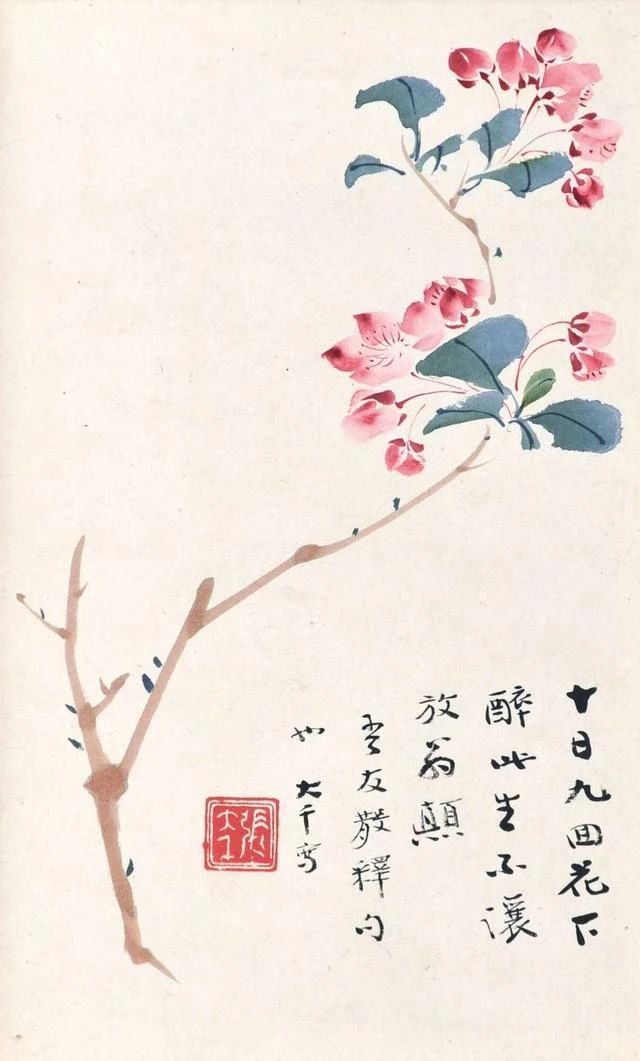 十日九回花下
醉此生不讓
放翁顛
友散釋句
也 大千寫
張大千